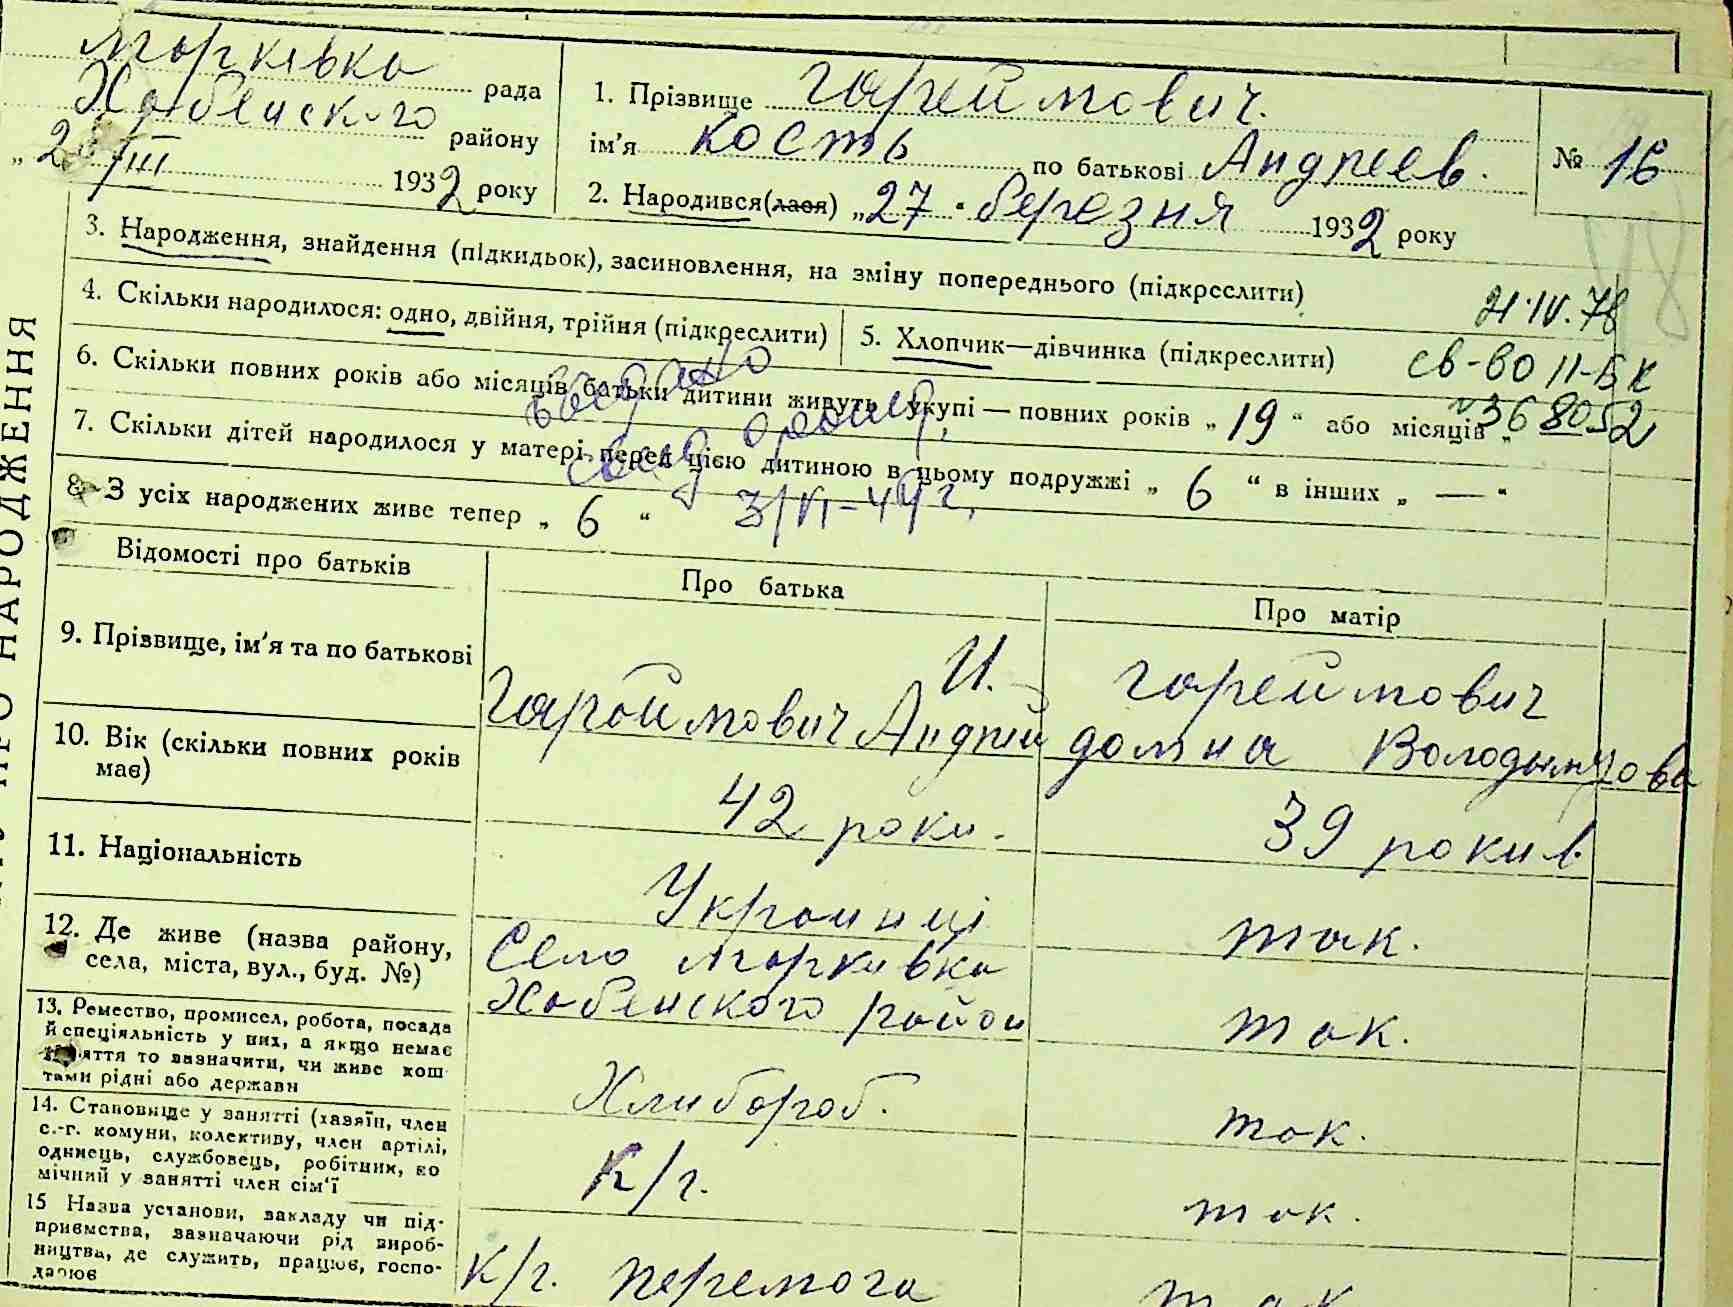 Морківка рада
Хабенского району
„2 /III 1932 року
1. Прізвище Гареймович.
ім'я Кость по батькові Андреев.
№ 16
2. Народився(лася) „27" березня 1932 року
3. Народження, знайдення (підкидьок), засиновлення, на зміну попереднього (підкреслити)
4. Скільки народилося: одно, двійня, трійня (підкреслити)
5. Хлопчик—дівчинка (підкреслити)
21.IV.78
св-во II-БК
№368052
6. Скільки повних років або місяців батьки дитини живуть укупі — повних років „19" або місяців „
7. Скільки дітей народилося у матері перед цією дитиною в цьому подружжі „ 6 " в інших „ — "
8. З усіх народжених живе тепер „ 6 "
3/VI-44 г.
НАРОДЖЕННЯ
Відомості про батьків
Про батька
Про матір
9. Прізвище, ім'я та по батькові
И.
Гароймович Андрій
Гареймович
Домна Володымирова
10. Вік (скільки повних років має)
42 роки.
39 рокив
11. Національність
Украинці
так.
12. Де живе (назва району,
села, міста, вул., буд. №)
Село Моркивка
Хабенского район
так.
13. Ремество, промисел, робота, посада
й спеціяльність у них, а якщо немає
заняття то зазначити, чи живе кош
тами рідні або держави
Хлибороб.
так.
14. Становище у занятті (хазяїн, член
с.-г. комуни, колективу, член артілі,
одинець, службовець, робітник, по
мічний у занятті член сім'ї
К/г.
так.
15 Назва установи, закладу чи під-
приємства, зазначаючи рід вироб-
ництва, де служить, працює, госпо-
дарює
К/г. перемога
так